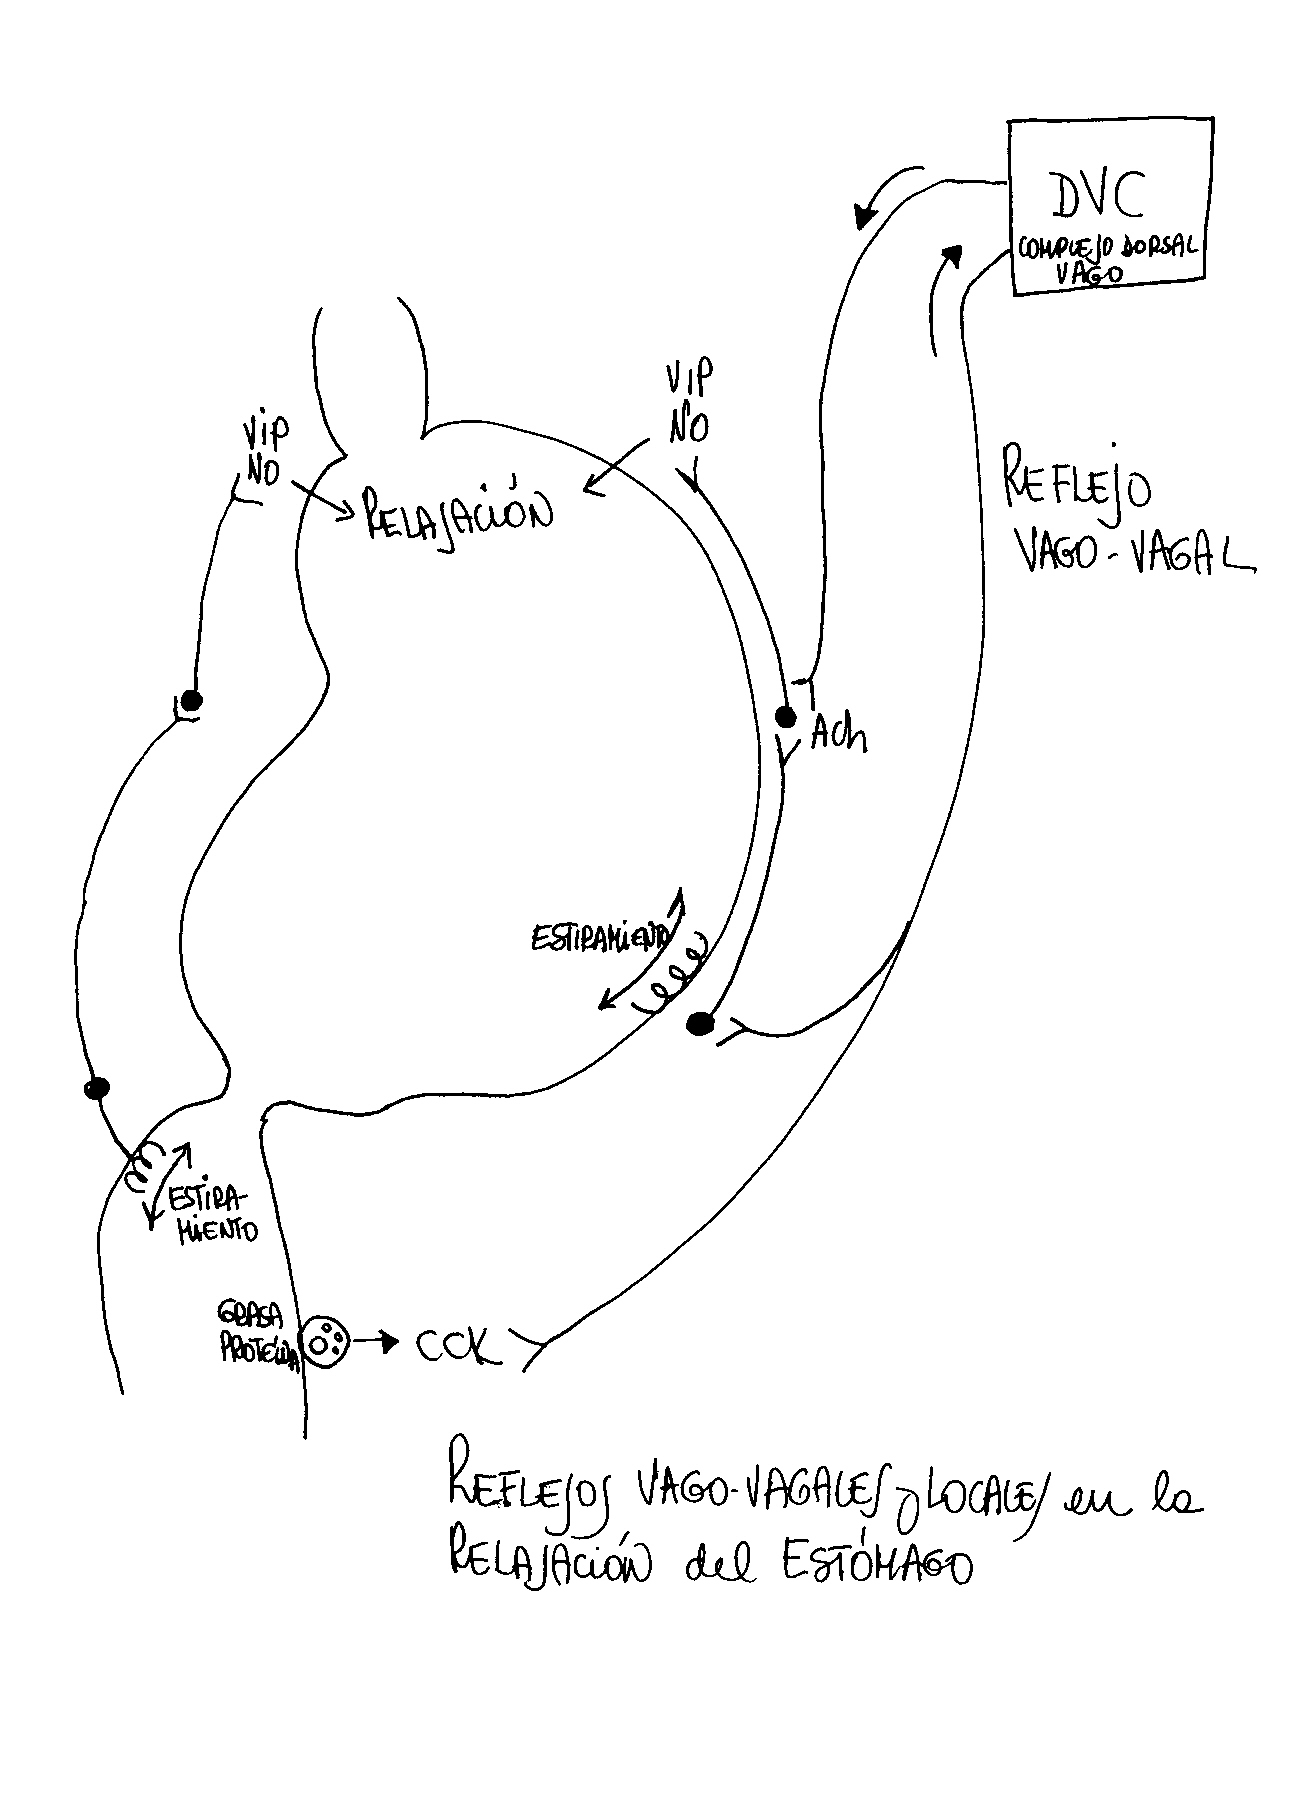 DVC
COMPLEJO DORSAL
VAGO
VIP
NO
VIP
NO
RELAJACIÓN
REFLEJO
VAGO-VAGAL
Ach
ESTIRAMIENTO
ESTIRA-
MIENTO
GRASA
PROTEÍNA
CCK
REFLEJOS VAGO-VAGALES y LOCALES en la
RELAJACIÓN del ESTÓMAGO